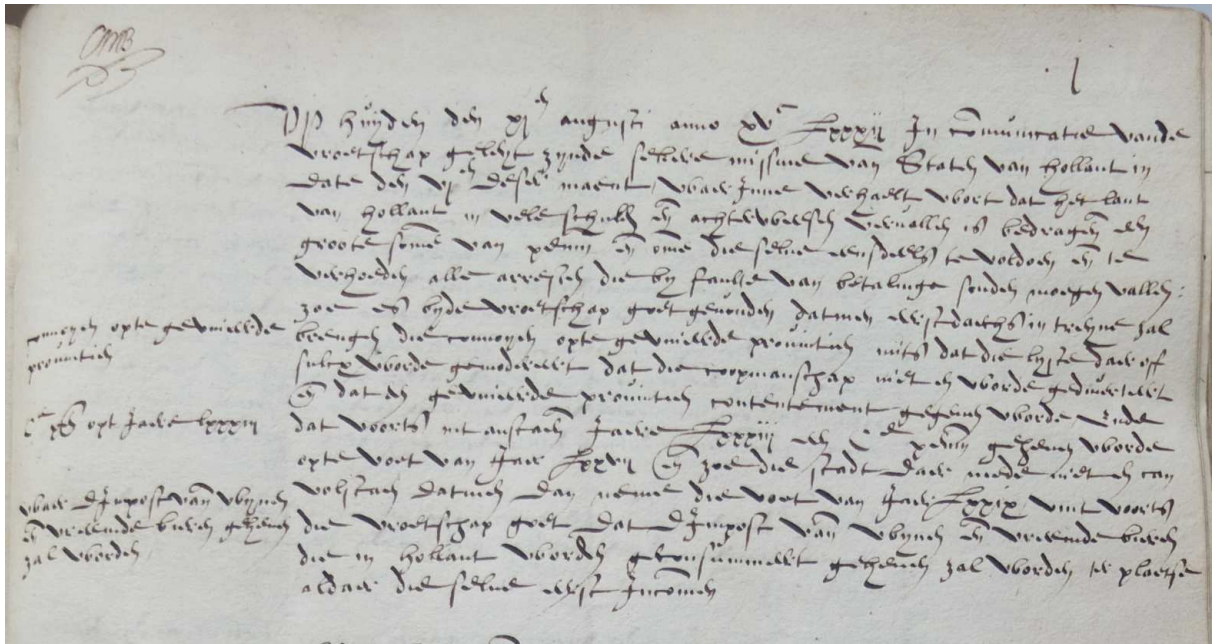 1
Op huyden den xjen augusti anno xvc Lxxxij In comunicatie vande
vroetschap geleyt zijnde sekere missive van Staten van hollant in
date den vjen deser maent, waer Inne verhaelt wort dat het lant
van hollant in vele schulden en achterwesen vervallen is bedragen een
groote some van penn en ome die selve eensdeels te voldoen en te
verhoeden alle arresten die by faulte van betalinge souden moegen vallen:
zoe es byde vroetschap goet gevonden datmen eerstdaechs in treyne zal
brengen die convoyen opte geunieerde provintien mits dat die lyste daer off
sulcx worde gemodereert dat die coopmanschap niet en worde gediverteert
en dat den geunieerde provintien contentement gegeven worde, Ende
dat voorts int anstaen Jaere Lxxxiij een Ce penn geheven worde
opte voet van Jaer Lxxvij en zoe die stadt daer mede niet en can
volstaen datmen dan neme die voet van Jaer Lxxix, vint voorts
die vroetschap goet dat dJmpost van wynen en vreemde bieren
die in hollant worden geconsummeert geheven zal worden ter plaetse
aldaer die selve eerst Incomen
convoyen opte geunieerde
provintien
Ce pen opt Jaere lxxxiij
waer dJmpost van wynen
en vreemde bieren geheven
zal worden